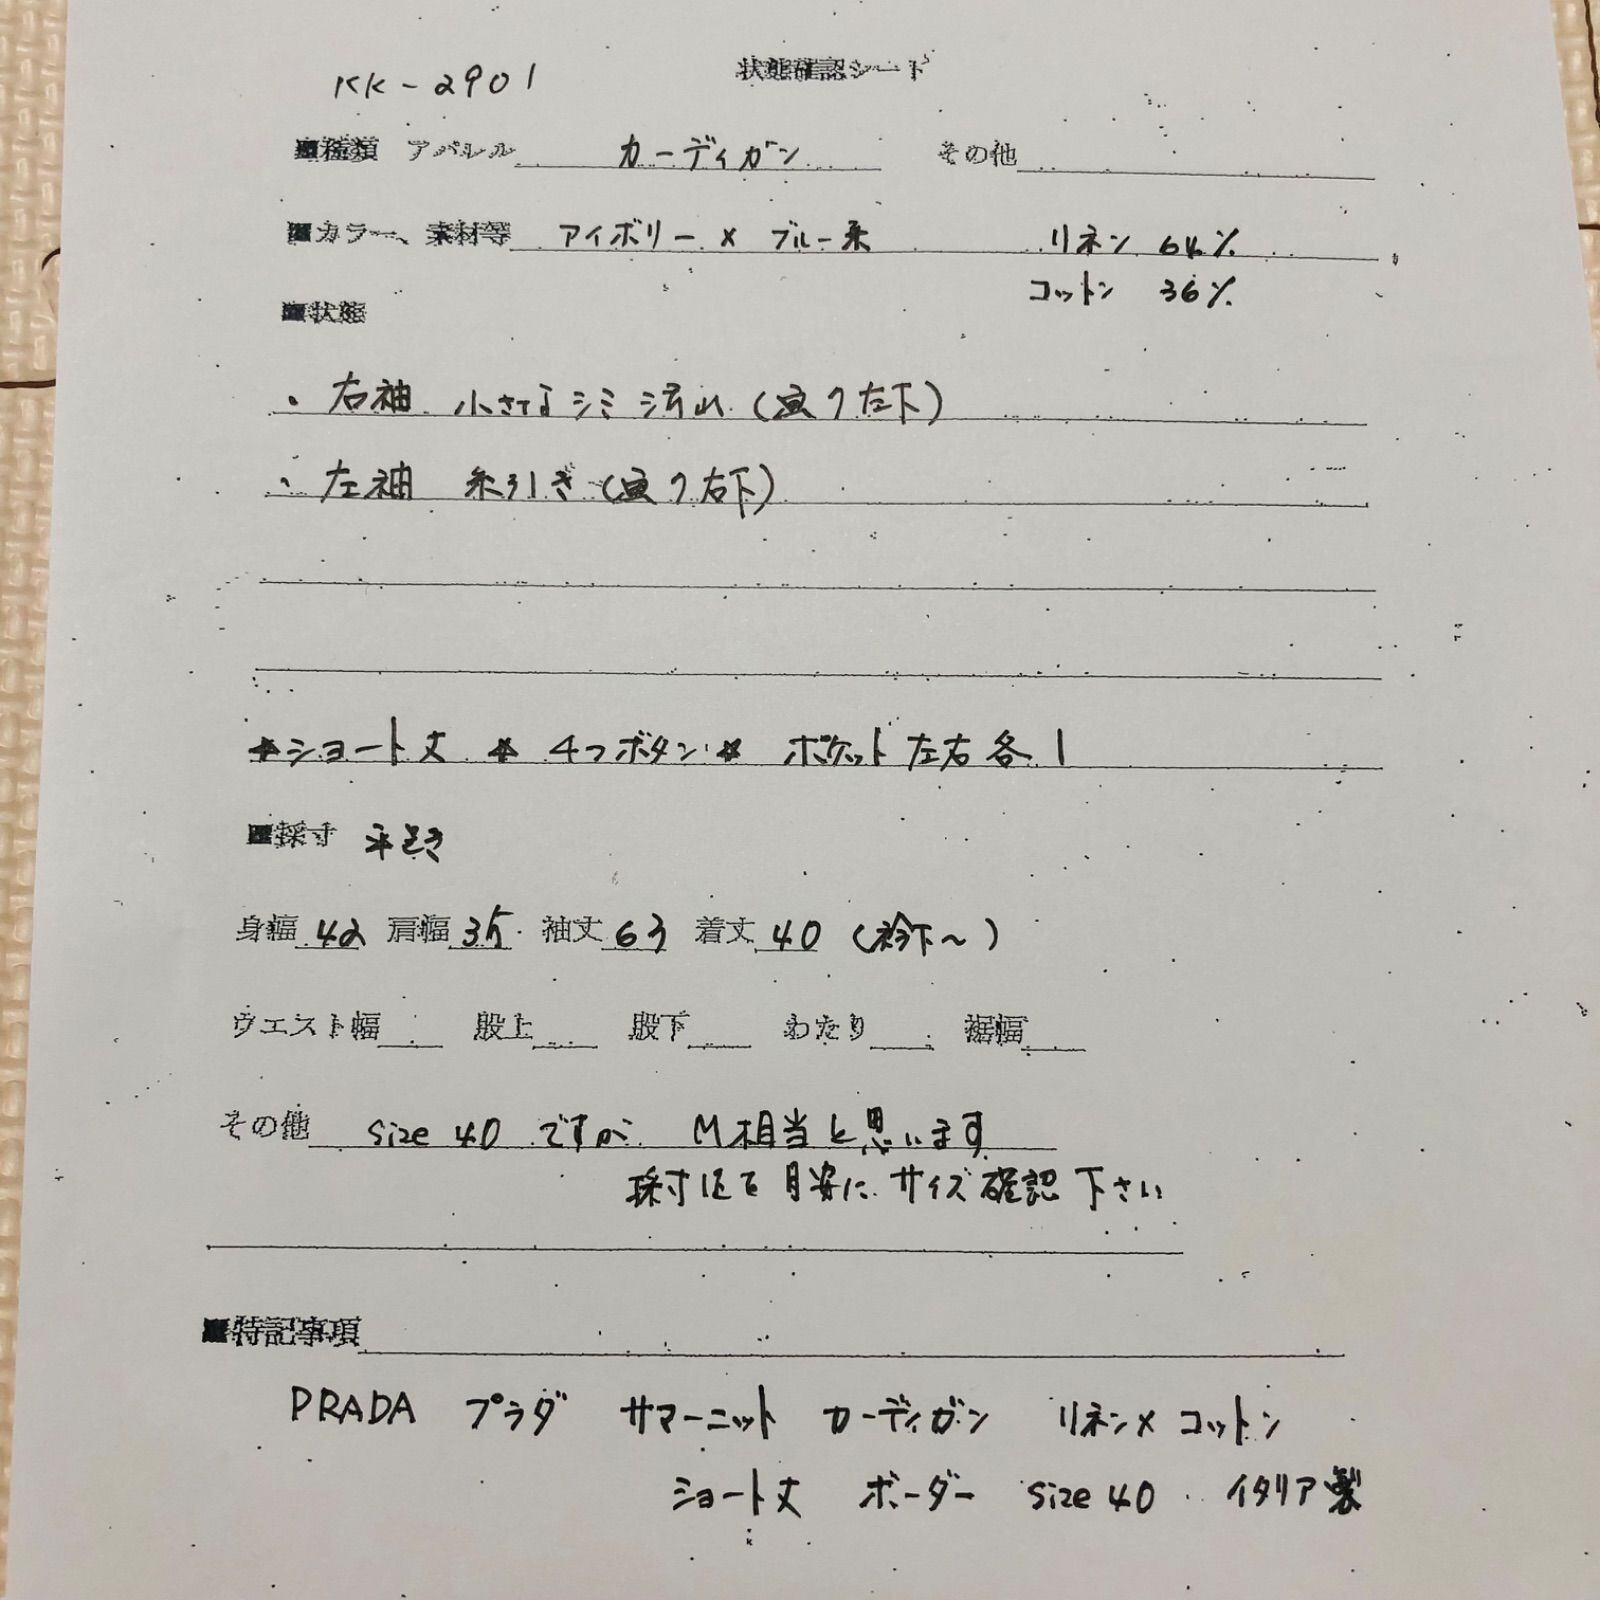 KK-2901
状態確認シート
■種類 アパレル カーディガン その他
■カラー、素材等 アイボリー × ブルー系 リネン 64%
コットン 36%
■状態
・右袖 小さなシミ 汚れ (画7左下)
・左袖 糸引き (画7右下)
★ショート丈 ★ 4つボタン ★ ポケット左右各1
■採寸 平置き
身幅 42 肩幅 35 袖丈 63 着丈 40 (衿下〜)
ウエスト幅 股上 股下 わたり 裾幅
その他 size 40 ですが M相当と思います
採寸値を目安に サイズ確認下さい
■特記事項
PRADA プラダ サマーニット カーディガン リネン×コットン
ショート丈 ボーダー size 40 イタリア製